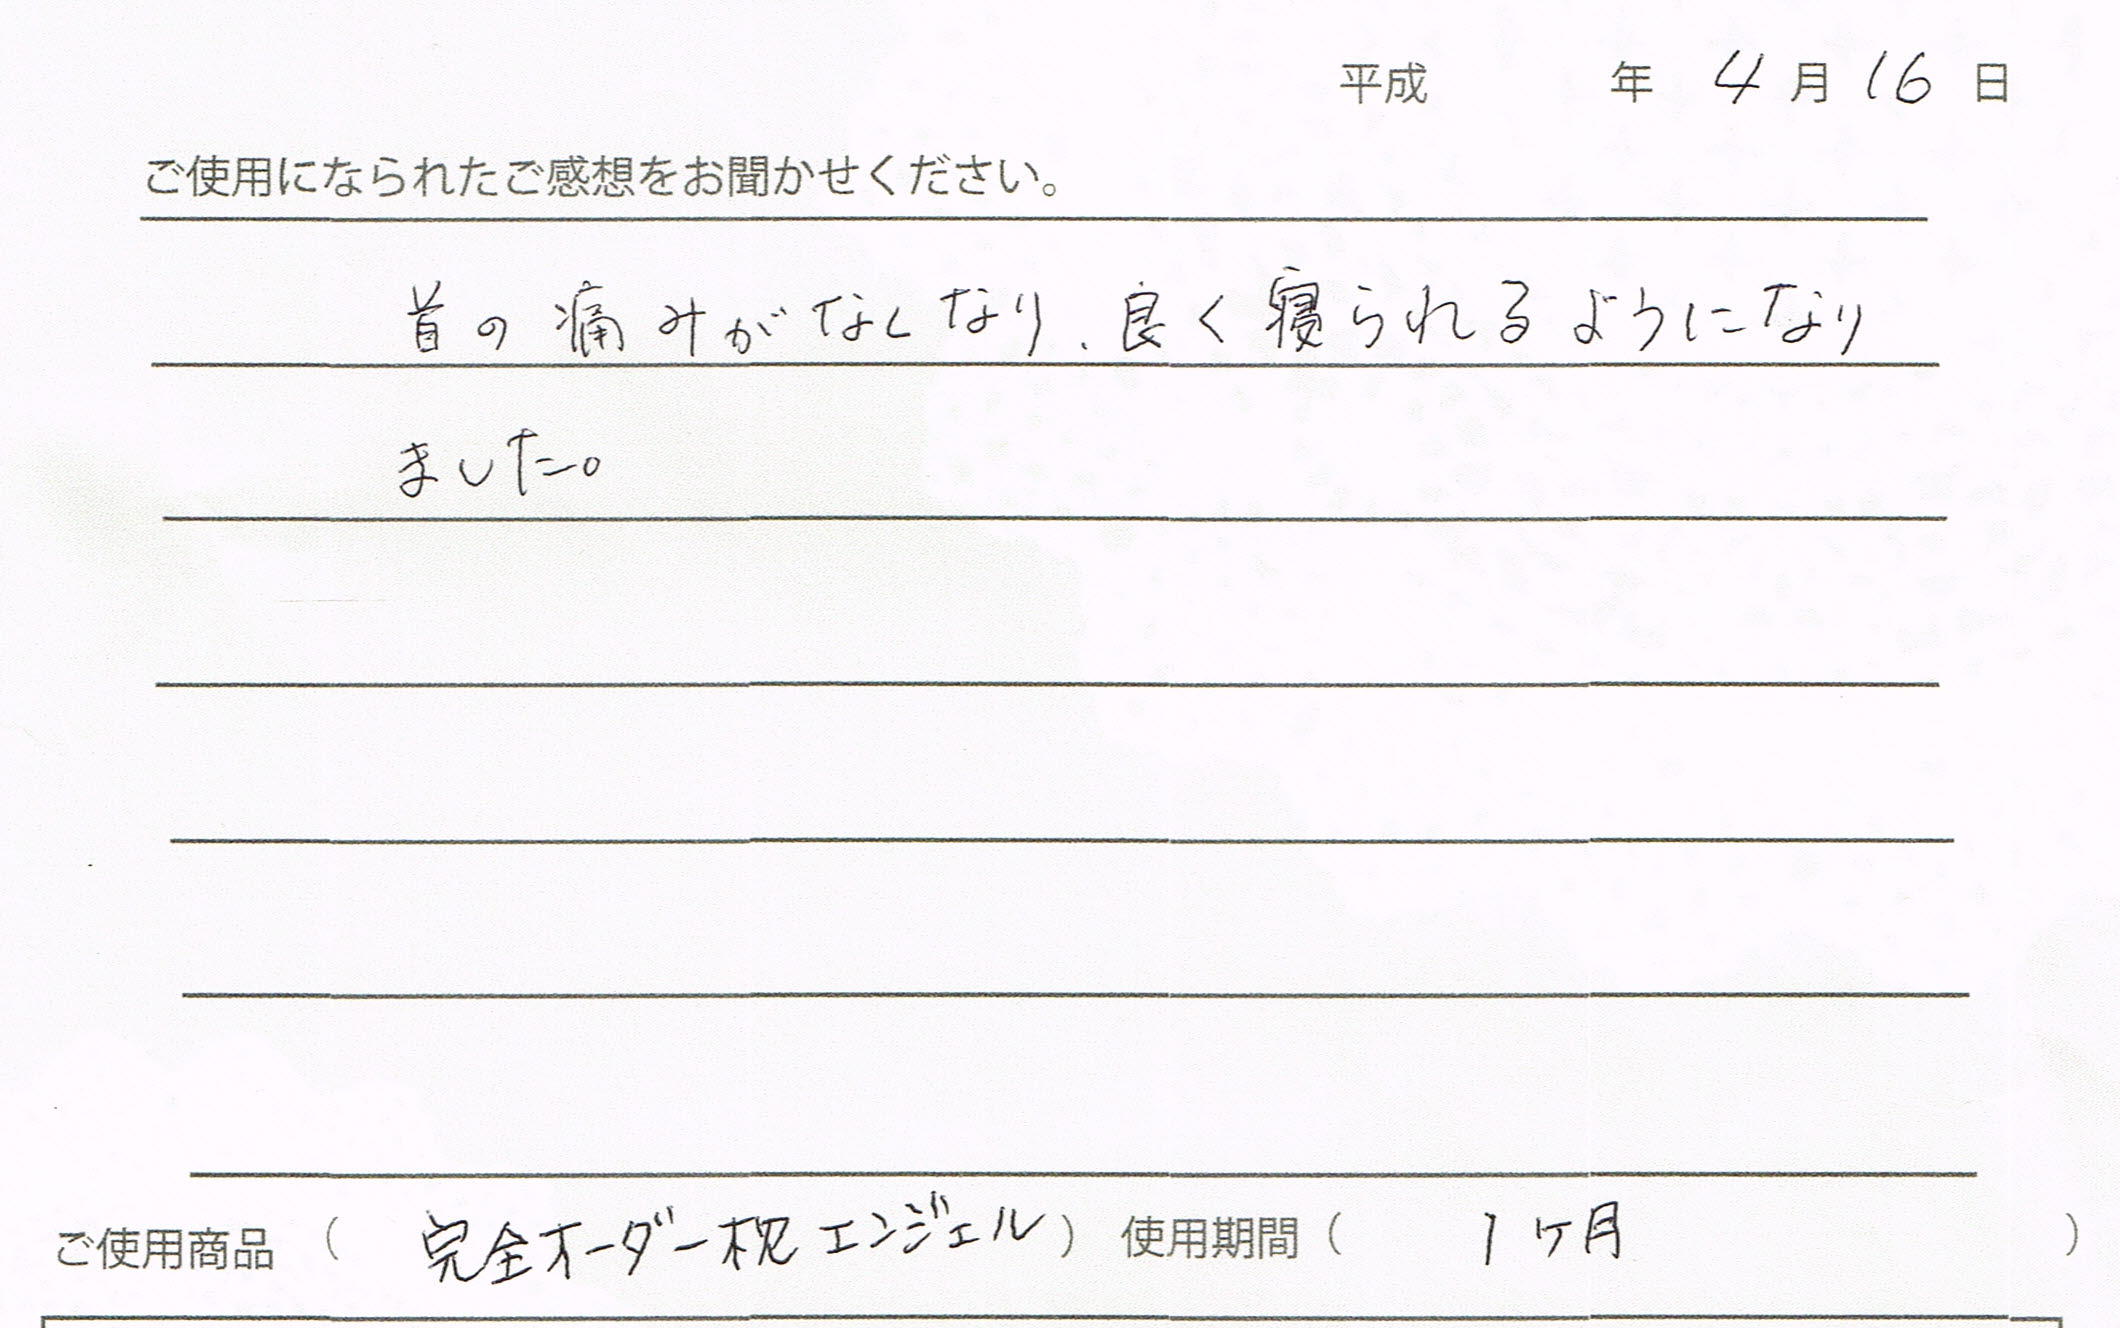 平成 年 4 月 16 日
ご使用になられたご感想をお聞かせください。
首の痛みがなくなり、良く寝られるようになり
ました。
ご使用商品（完全オーダー枕エンジェル）使用期間（1ヶ月）